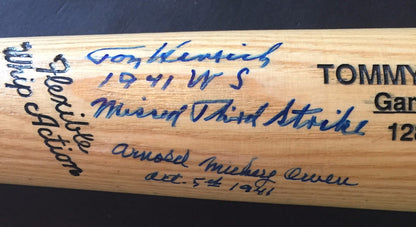 Flexible
Whip Action
Tom Henrich
1941 W S
Missed Third Strike
Arnold Mickey Owen
Oct. 5th 1941
TOMMY
Gam
12